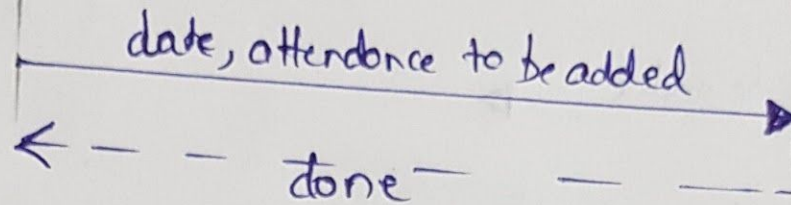 date, attendonce to be added
done